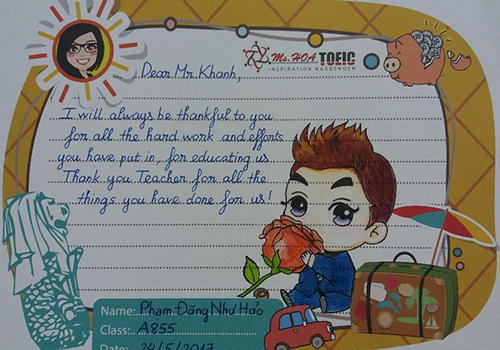 Ms. HOA TOEIC
INSPIRATION MESSENGER
Dear Mr. Khanh,
I will always be thankful to you
for all the hard work and efforts
you have put in, for educating us
Thank you Teacher for all the
things you have done for us!
Name: Phạm Đặng Như Hảo
Class: A855
Date: 24/5/2017